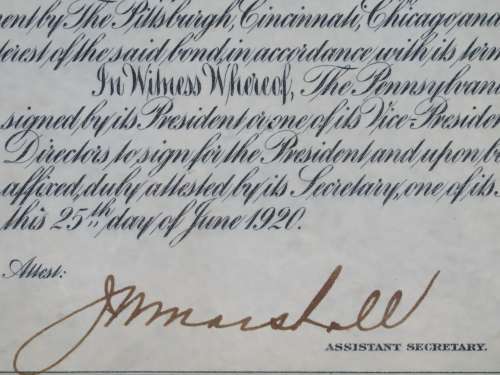 ent by The Pittsburgh, Cincinnati, Chicago and
terest of the said bond, in accordance with its term
In Witness Whereof, The Pennsylvan
signed by its President or one of its Vice-Presiden
Directors to sign for the President and upon b
affixed, duly attested by its Secretary, one of its
this 25th day of June 1920.
Attest:
JW Marshall
ASSISTANT SECRETARY.